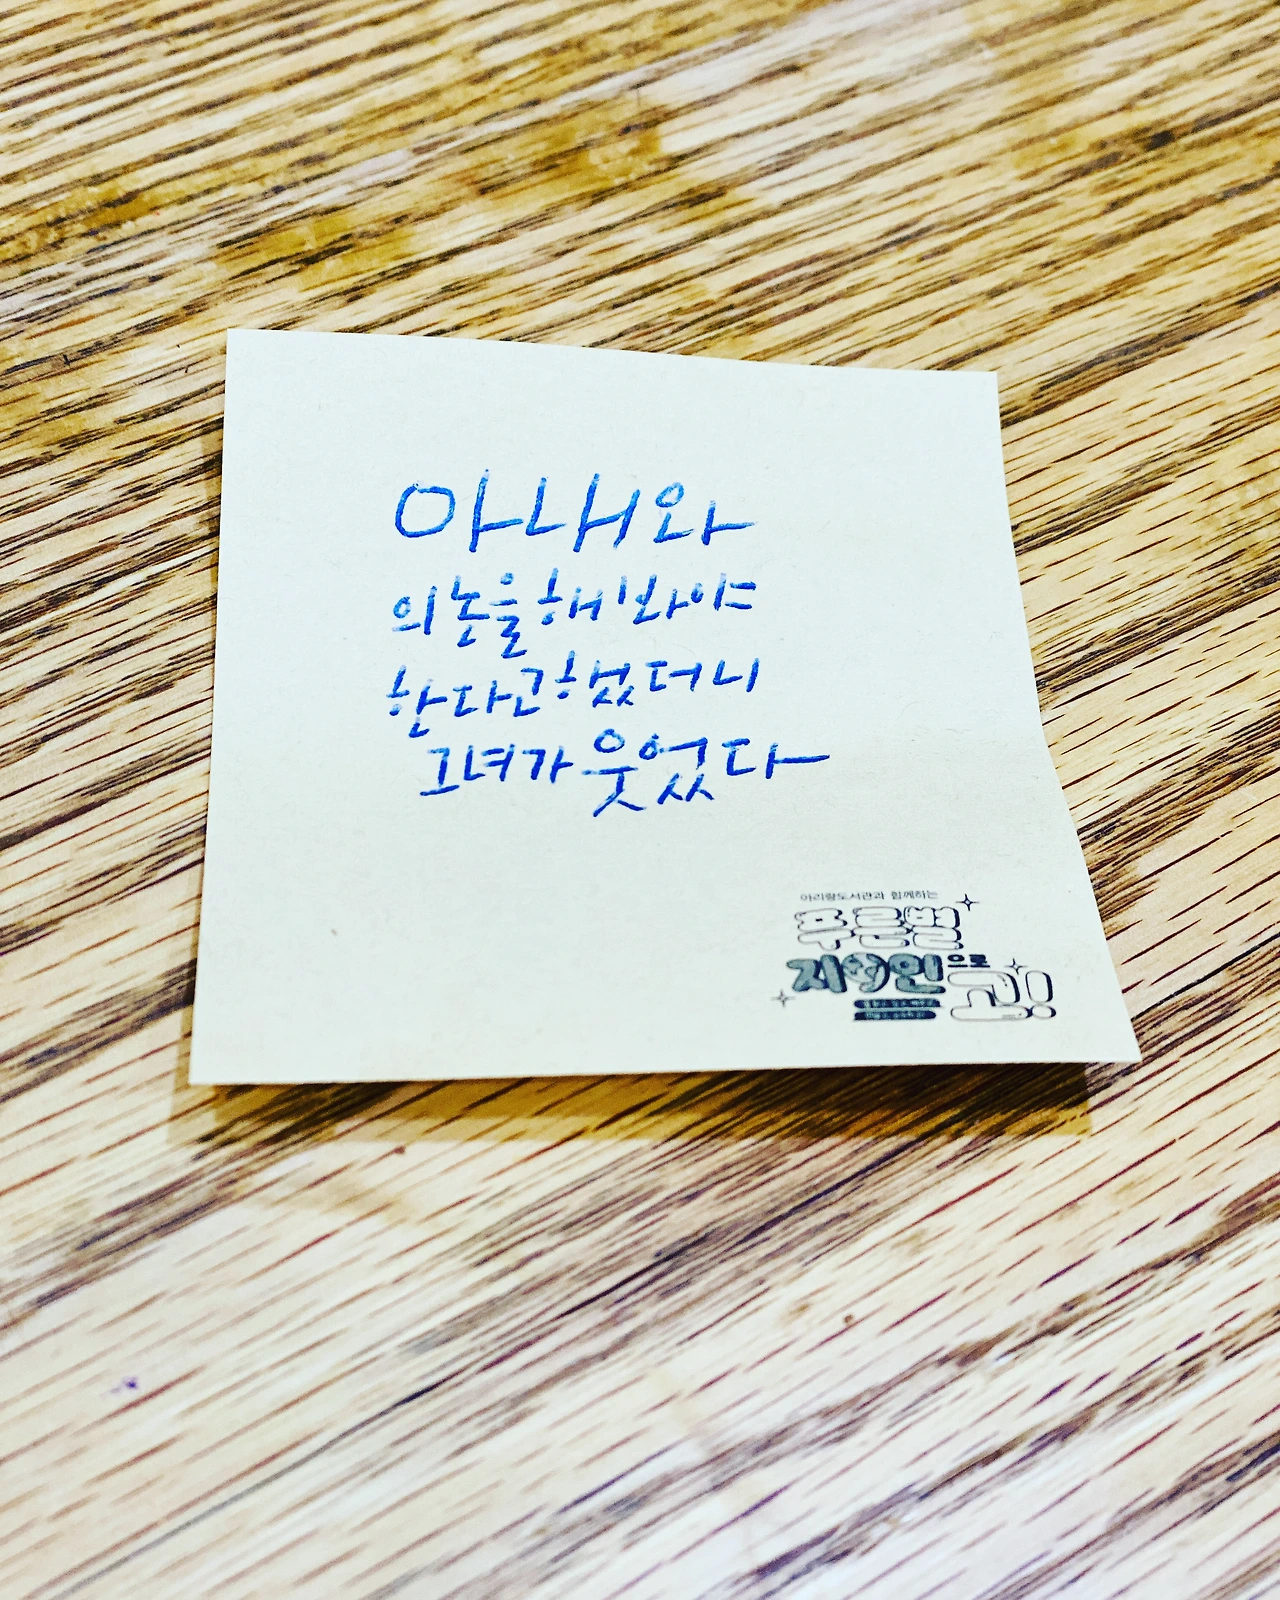 아내와
의논을해봐야
한다고했더니
그녀가웃었다
아리랑도서관과 함께하는
푸른별
지구인으로
고!